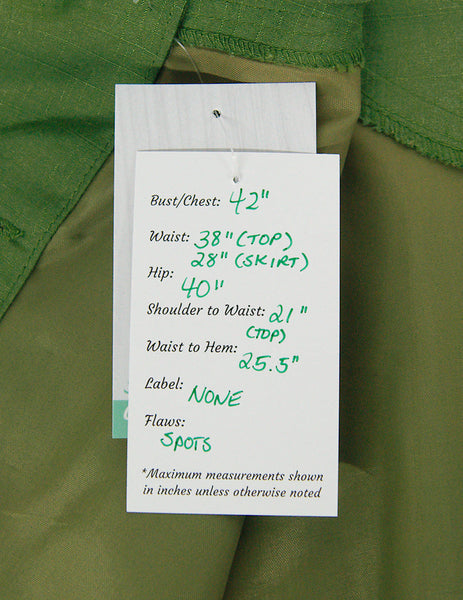 Bust/Chest: 42"
Waist: 38" (TOP)
28" (SKIRT)
Hip: 40"
Shoulder to Waist: 21"
(TOP)
Waist to Hem: 25.5"
Label: NONE
Flaws:
SPOTS
*Maximum measurements shown
in inches unless otherwise noted